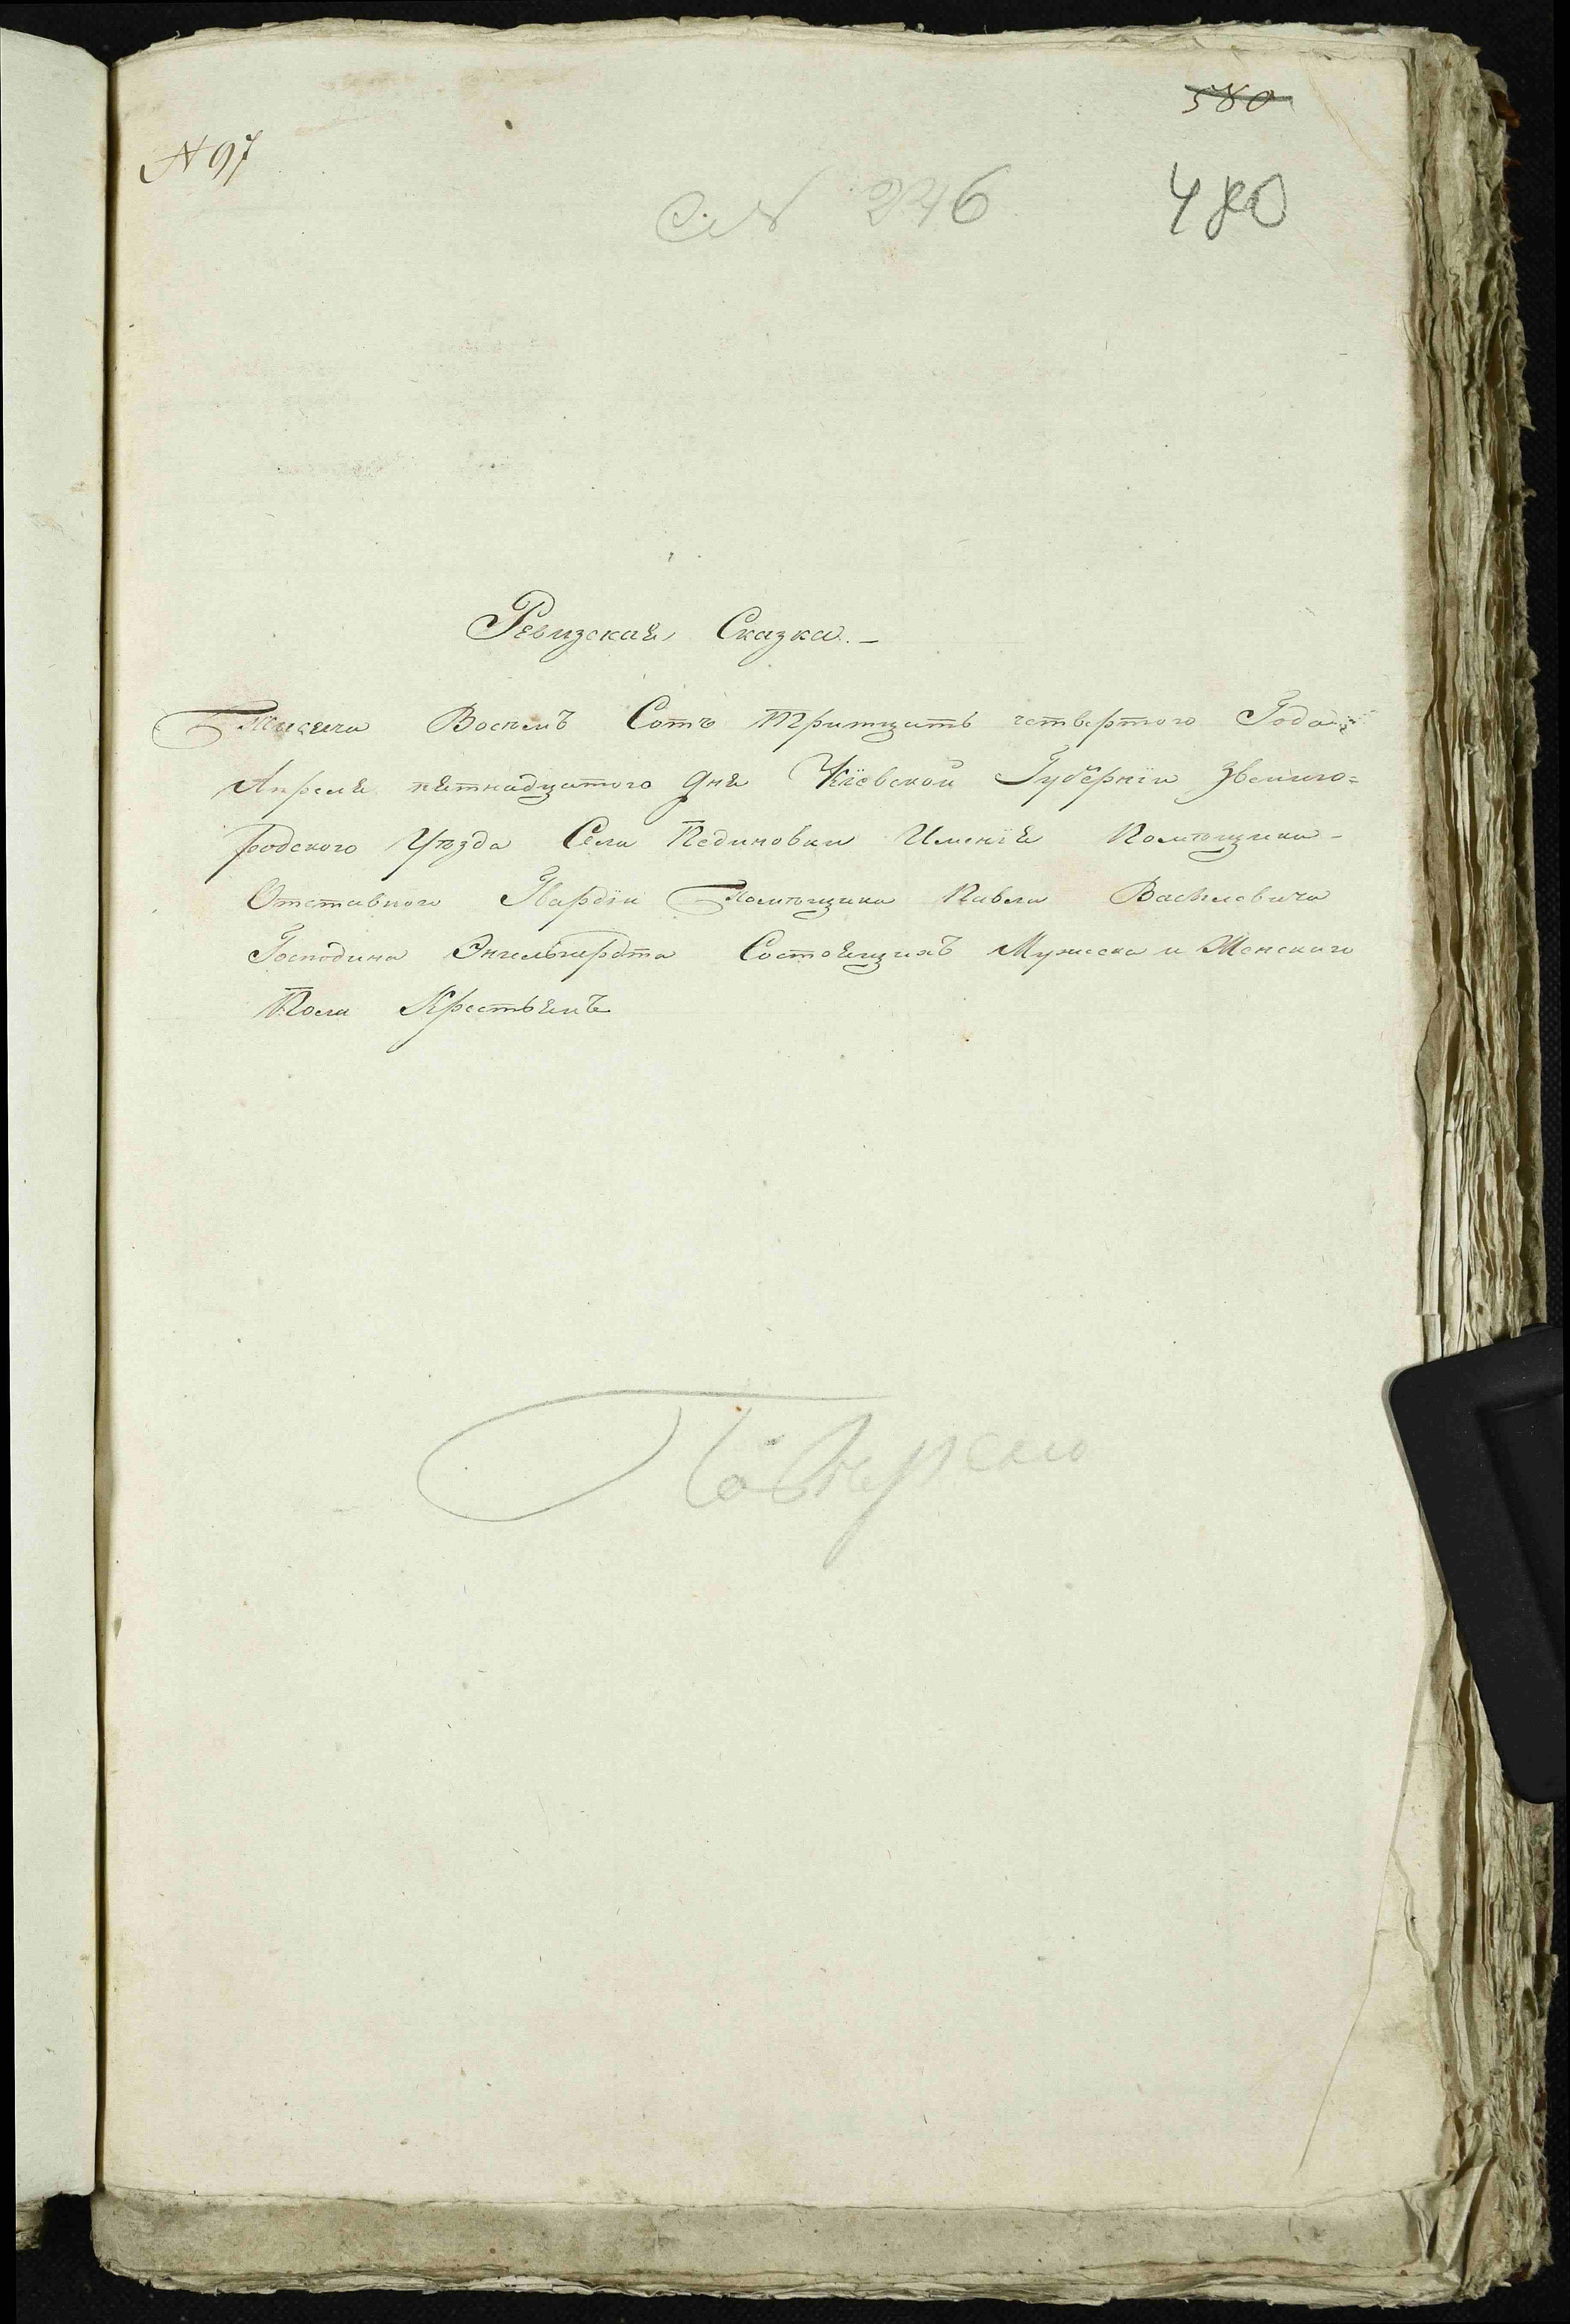 580
N 97
N 246
480
Ревизская Сказка. —
Тысяча Восемъ Сотъ Тритцать четвертого Года
Апреля пятнадцатого дня Кіевской Губерніи Звениго=
родского Уѣзда Села Пединовки Именія Помѣщика -
Отставного Гвардіи Помѣщика Павла Васильевича
Господина Энгельгардта Состоящихъ Мужеска и Женскаго
Пола Крестьянъ